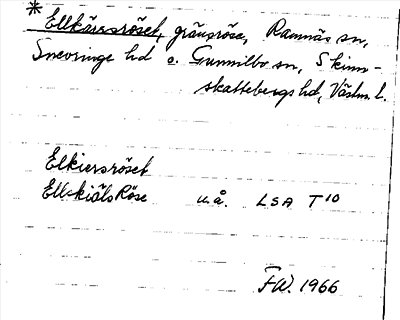 * Ellkärsröset, gränsröse, Ramnäs sn,
Snevringe hd o. Gunnilbo sn, Skinn-
skattebergs hd, Västm. l.
Elkiersröset
Ellskiäls Röse u.å. LSA T 10
F.W. 1966